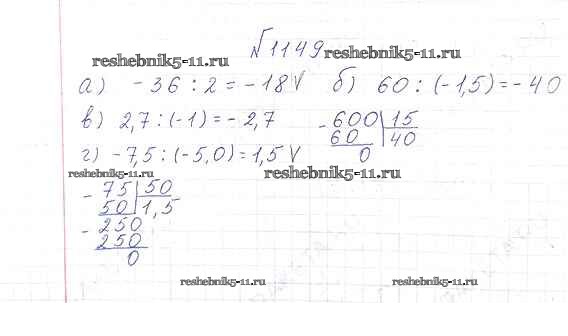 №1149
reshebnik5-11.ru reshebnik5-11.ru
а) -36 : 2 = -18 V б) 60 : (-1,5) = -40
в) 2,7 : (-1) = -2,7
- 600 | 15
60 | 40
0
г) -7,5 : (-5,0) = 1,5 V
reshebnik5-11.ru reshebnik5-11.ru
- 75 | 50
50 | 1,5
- 250
250
0
reshebnik5-11.ru reshebnik5-11.ru